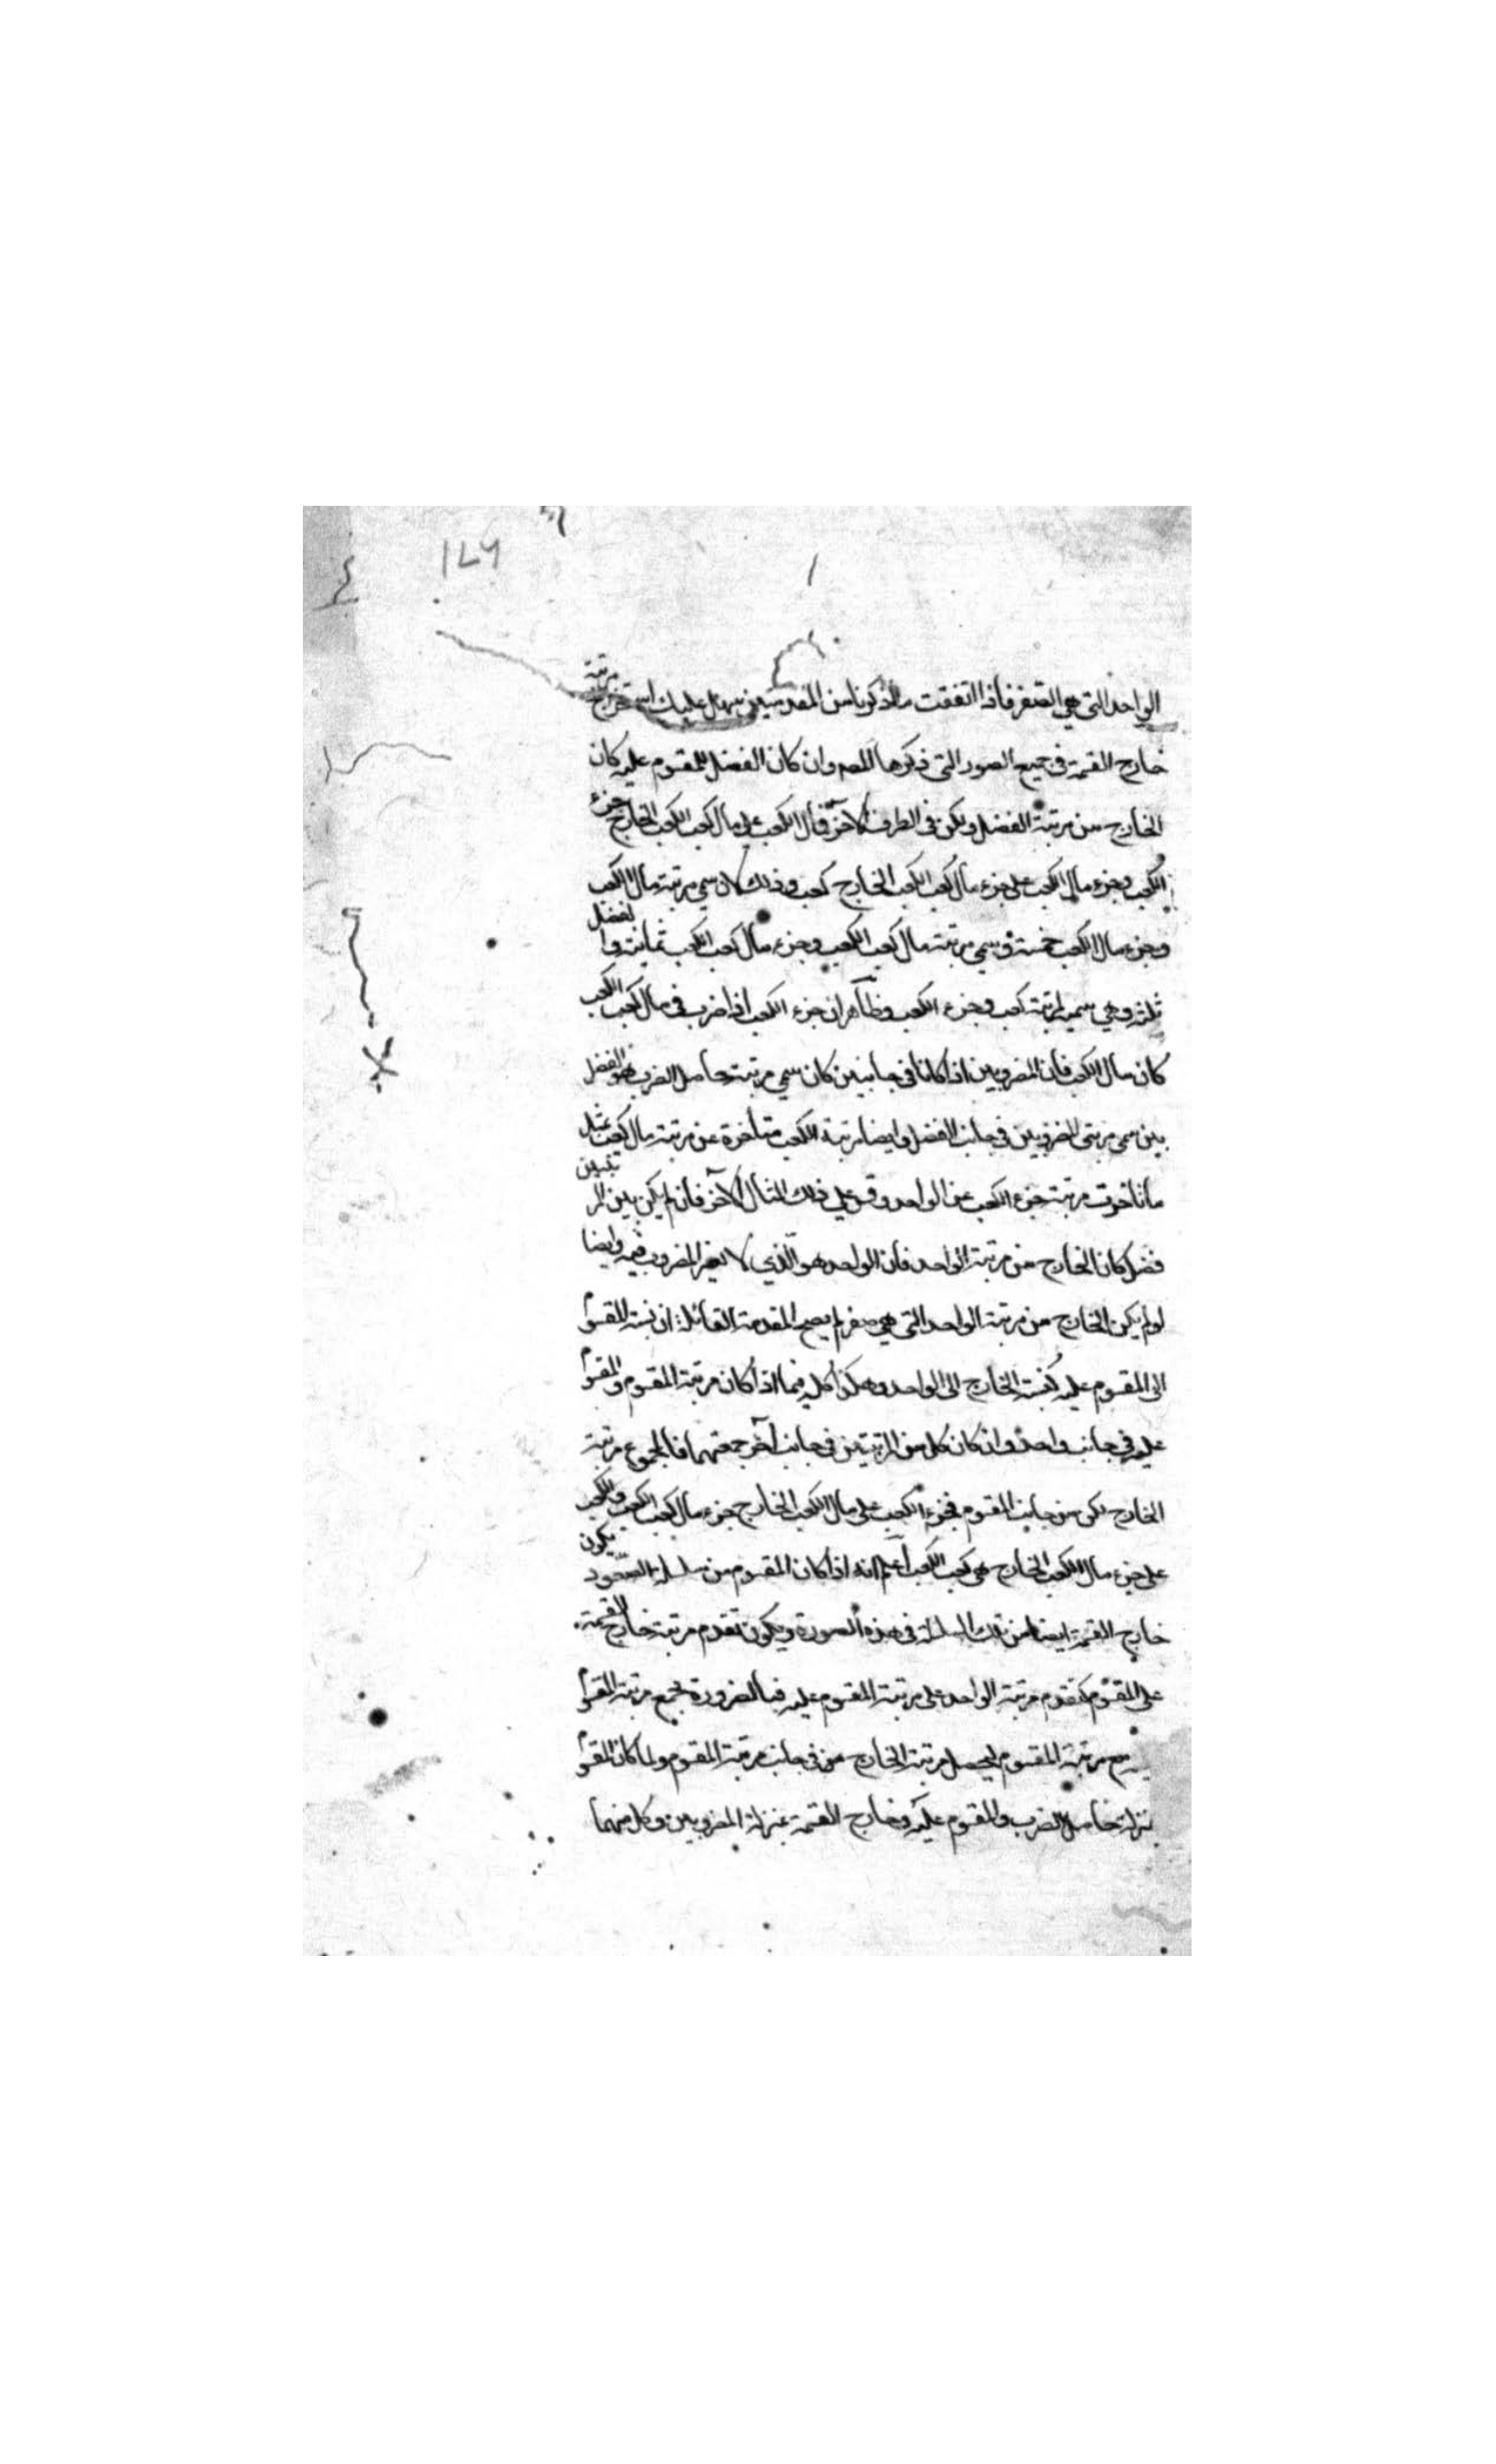 الواحد التي هي الصفر فاذا اتفقت ما ذكرنا من المقدمتين سهل عليك استخراج مرتبة
خارج القسمة في جميع الصور التي ذكرها المصـ وان كان الفضل للمقسوم عليه كان
الخارج من مرتبة الفضل ولكن في الطرف الآخر فمال الكعب على مال كعب الكعب الخارج جزء
الكعب وجزء مال الكعب على جزء مال كعب الكعب الخارج كعب وذلك لان سمي مرتبة مال الكعب
وجزء مال الكعب خمسة وسمي مرتبة مال كعب الكعب وجزء مال كعب الكعب ثمانية والفضل
ثلثة وهي سمي لمرتبة كعب وجزء الكعب وظاهر ان جزء الكعب اذا ضرب في مال كعب الكعب
كان مال الكعب فان المضروبين اذا كانا في جانبين كان سمي مرتبة حاصل الضرب هو الفضل
بين سمي مرتبتي المضروبين في جانب الفضل وايضا مرتبة الكعب متأخرة عن مرتبة مال كعب بمثل
ما تأخرت مرتبة جزء الكعب عن الواحد وقس على ذلك المثال الآخر فان لم يكن بين المرتبتين
فضل كان الخارج من مرتبة الواحد فان الواحد هو الذي لا يغير المضروب فيه وايضا
لو لم يكن الخارج من مرتبة الواحد التي هي صفر لم يصح المقدمة القائلة ان نسبة المقسوم
الى المقسوم عليه كنسبة الخارج الى الواحد وهكذا كله فيما اذا كان مرتبة المقسوم والمقسوم
عليه في جانب واحد وان كان كل من المرتبتين في جانب آخر جمعتهما فالمجموع مرتبة
الخارج لكن من جانب المقسوم فجزء الكعب على مال الكعب الخارج جزء مال كعب الكعب والكعب
على جزء مال الكعب الخارج هي كعب الكعب اعلم انه اذا كان المقسوم من سلسلة الصعود يكون
خارج القسمة ايضا من تلك السلسلة في هذه الصورة ويكون تقدم مرتبة خارج القسمة
على المقسوم كتقدم مرتبة الواحد على مرتبة المقسوم عليه فبالضرورة يجمع مرتبة المقسوم
مع مرتبة المقسوم ليحصل مرتبة الخارج من في جانب مرتبة المقسوم ولما كان المقسوم
بمنزلة حاصل الضرب والمقسوم عليه وخارج القسمة بمنزلة المضروبين وكل منهما